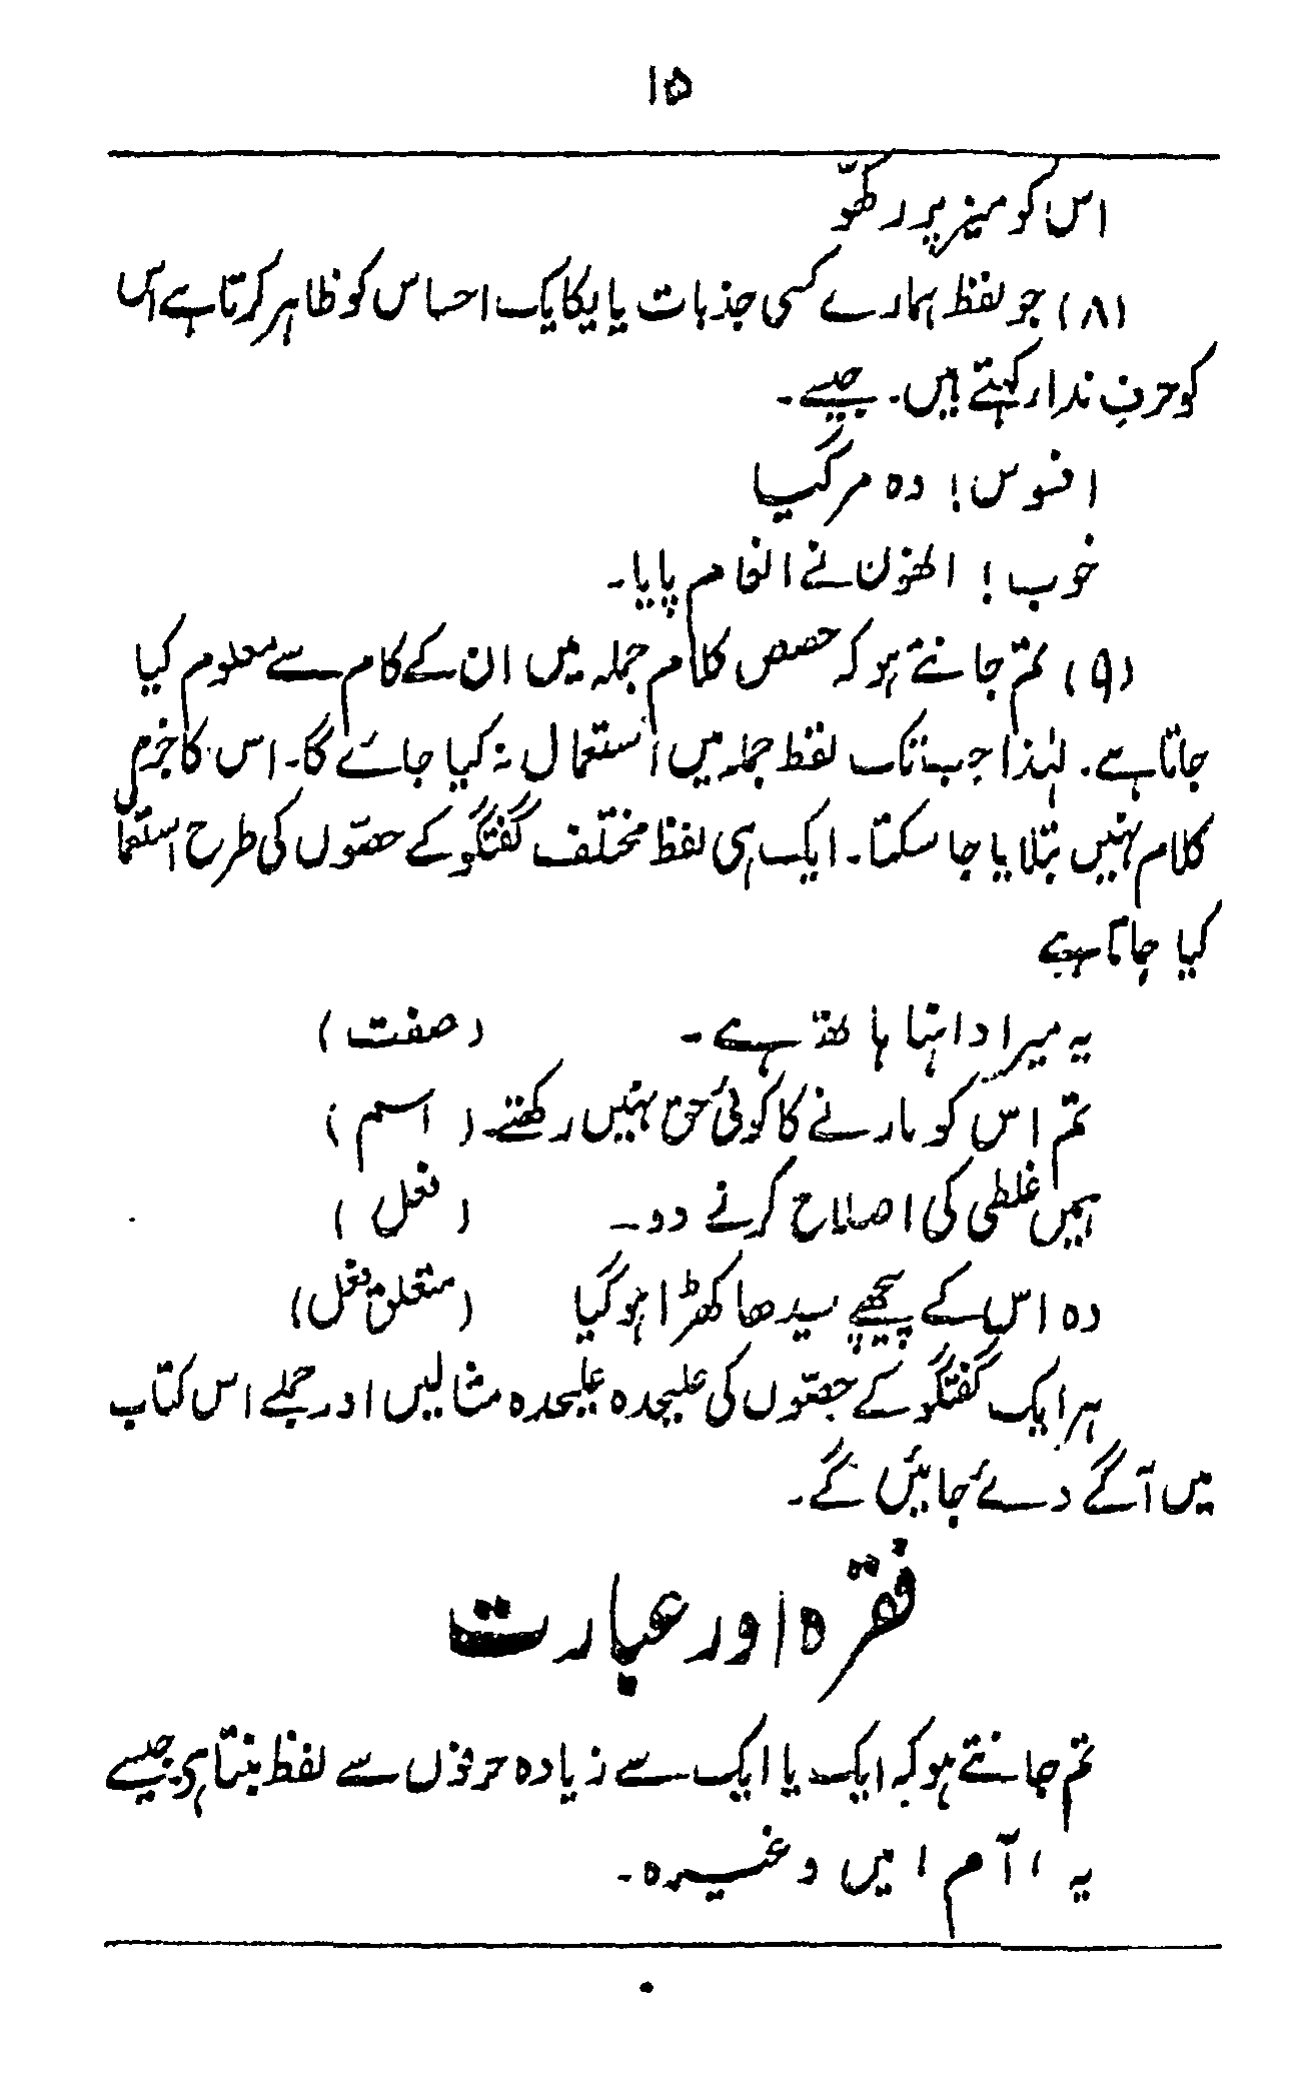 ۱۵
اس کو میز پر رکھّو
(۸) جو لفظ ہمارے کسی جذبات یا یکایک احساس کو ظاہر کرتا ہے اس
کو حرفِ ندار کہتے ہیں۔ جیسے۔
افسوس! وہ مر گیا
خوب! انھوں نے انعام پایا۔
(۹) تم جانتے ہو کہ حصص کلام جملہ میں ان کے کام سے معلوم کیا
جاتا ہے۔ لہٰذا جب تک لفظ جملہ میں استعمال نہ کیا جائے گا۔ اس کا جزم
کلام نہیں بتلایا جا سکتا۔ ایک ہی لفظ مختلف گفتگو کے حصّوں کی طرح استعمال
کیا جاتا ہے
یہ میرا داہنا ہاتھ ہے۔ (صفت)
تم اس کو مارنے کا کوئی حق نہیں رکھتے۔ (اسم)
ہمیں غلطی کی اصلاح کرنے دو۔ (فعل)
وہ اس کے پیچھے سیدھا کھڑا ہو گیا (متعلق فعل)
ہر ایک گفتگو کے حصّوں کی علیحدہ علیحدہ مثالیں اور جملے اس کتاب
میں آگے دئے جائیں گے۔
فقرہ اور عبارت
تم جانتے ہو کہ ایک یا ایک سے زیادہ حرفوں سے لفظ بنتا ہی جیسے
یہ، آم، میں وغیرہ۔